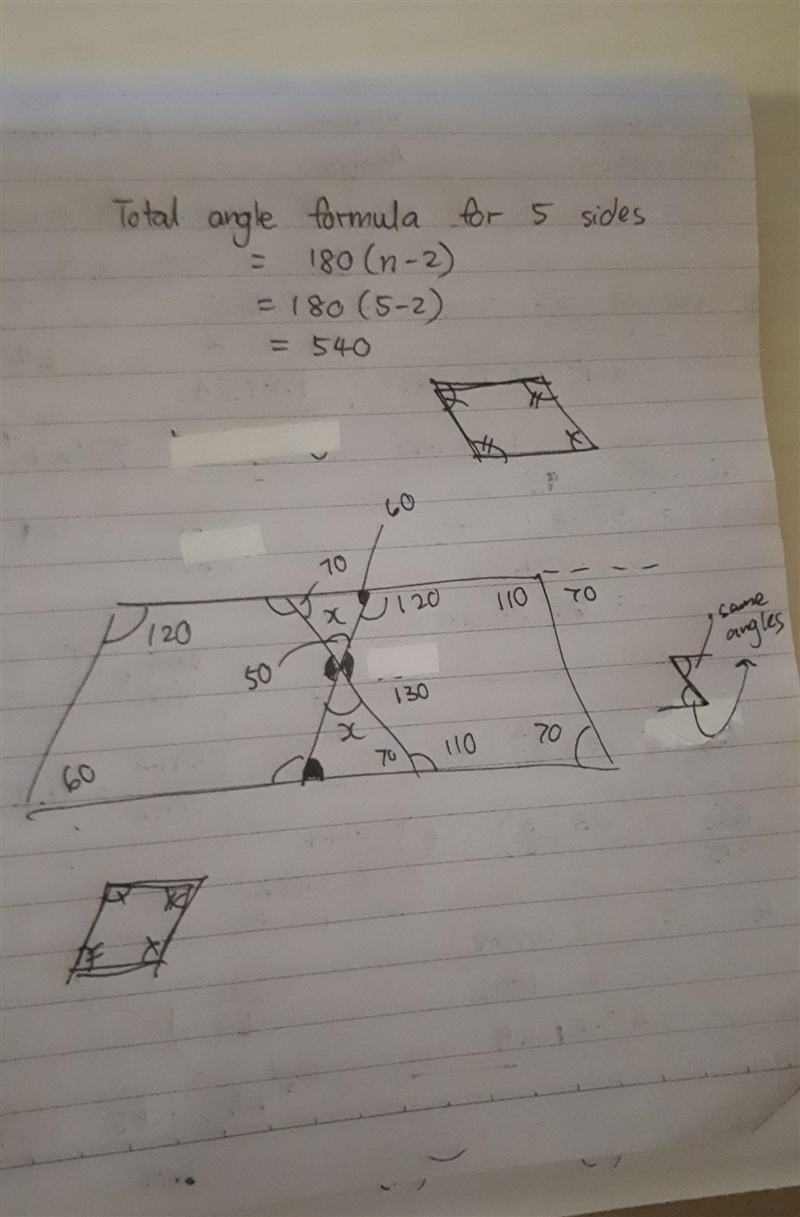 Total angle formula for 5 sides
= 180(n-2)
= 180(5-2)
= 540
60
70
x
120
110
70
120
50
130
x
70
110
70
60
same
angles